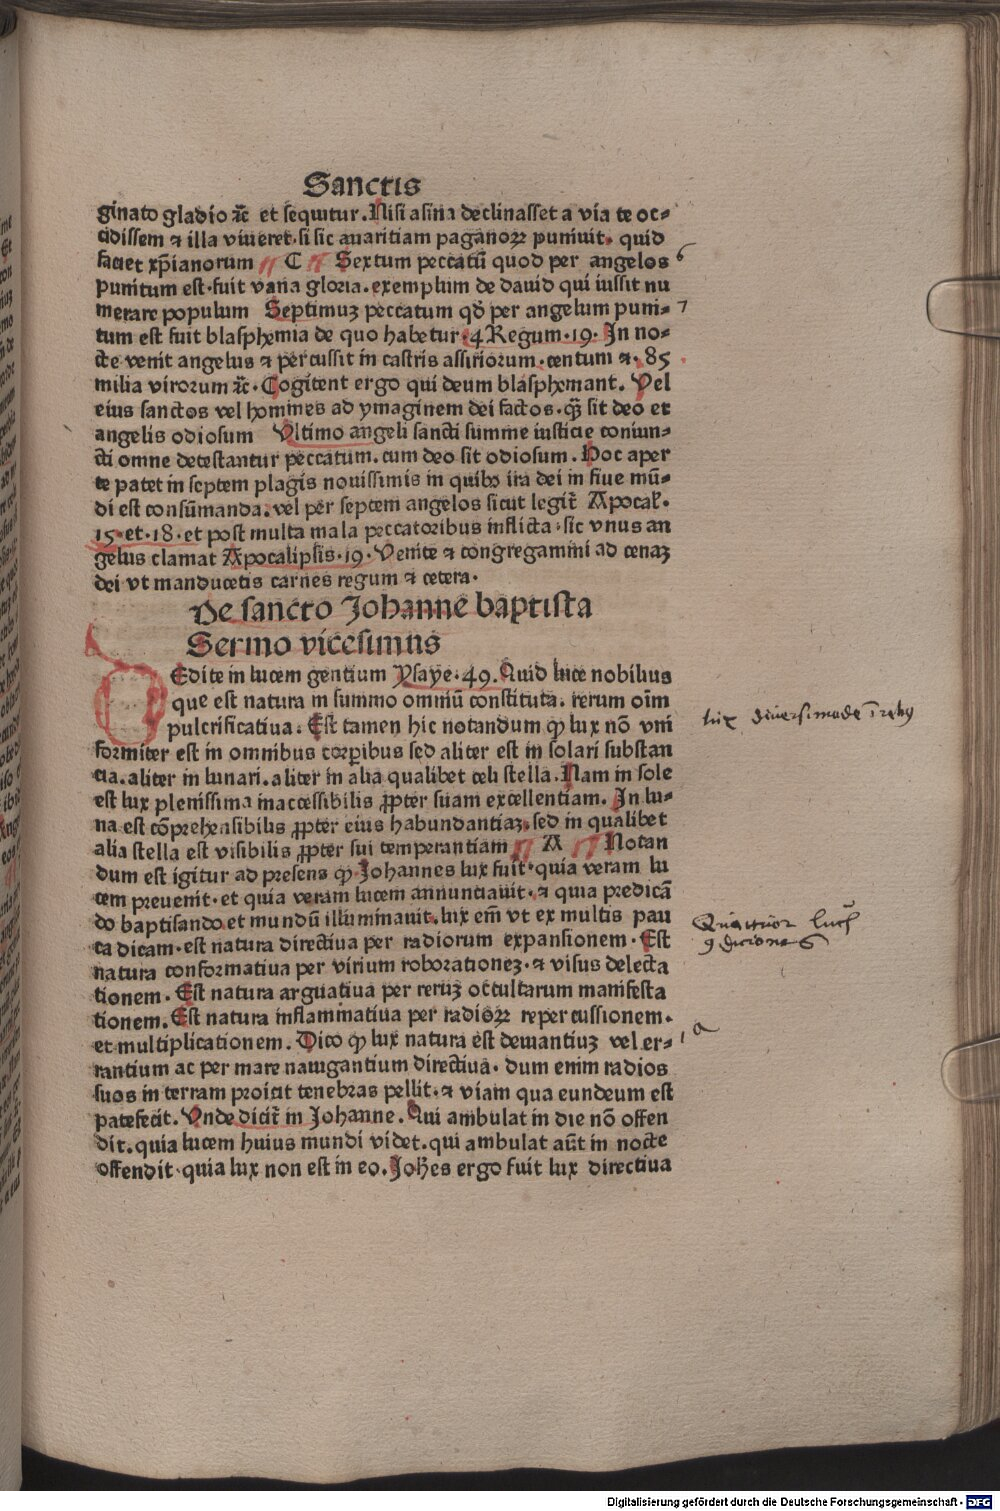 Sanctis
ginato gladio ⁊c̄ et sequitur. Nisi asina declinasset a via te oc⸗
cidissem ⁊ illa viueret. si sic auaritiam paganoꝝ puniuit. quid
faciet xp̄ianorum C Sextum peccatū quod per angelos 6
punitum est. fuit vana gloria. exemplum de dauid qui iussit nu
merare populum Septimuꝫ peccatum qd̓ per angelum puni⸗ 7
tum est fuit blasphemia de quo habetur. 4 Regum. 19. In no⸗
cte venit angelus ⁊ percussit in castris assiriorum. centum ⁊. 85
milia virorum ⁊c̄. Cogitent ergo qui deum blasphemant. Vel
eius sanctos vel homines ad ymaginem dei factos. qꝫ̄ sit deo et
angelis odiosum Vltimo angeli sancti summe iusticie coniun⸗
cti omne detestantur peccatum. cum deo sit odiosum. Hoc aper
te patet in septem plagis nouissimis in quibꝰ ira dei in fine mū⸗
di est consūmanda. vel per septem angelos sicut legit̄ Apocal̓.
15. et. 18. et post multa mala peccatoribus inflicta. sic vnus an
gelus clamat Apocalipsis. 19. Venite ⁊ congregamini ad cenaꝫ
dei vt manducetis carnes regum ⁊ cetera.
De sancto Johanne baptista
Sermo vicesimus
Edite in lucem gentium Ysaye. 49. Quid luce nobilius
que est natura in summo omniū constituta. rerum oīm
pulcrificatiua. Est tamen hic notandum ꝙ lux nō vni
formiter est in omnibus corꝑibus sed aliter est in solari substan
cia. aliter in lunari. aliter in alia qualibet celi stella. Nam in sole
est lux plenissima inaccessibilis ꝓpter suam excellentiam. In lu⸗
na est cōprehensibilis ꝓpter eius habundantiaꝫ. sed in qualibet
alia stella est visibilis ꝓpter sui temperantiam A Notan
dum est igitur ad presens ꝙ Johannes lux fuit. quia veram lu
cem preuenit. et quia veram lucem annunciauit. ⁊ quia predicā
do baptisando et mundū illuminauit. lux em̄ vt ex multis pau
ca dicam. est natura directiua per radiorum expansionem. Est
natura conformatiua per virium roborationeꝫ. ⁊ visus delecta
tionem. Est natura arguatiua per reruꝫ occultarum manifesta
tionem. Est natura inflammatiua per radioꝝ repercussionem.
et multiplicationem. Dico ꝙ lux natura est deuiantiuꝫ vel er⸗ 1 a
rantium ac per mare nauigantium directiua. dum enim radios
suos in terram proicit tenebras pellit. ⁊ viam qua eundeum est
patefecit. Vnde dicit̄ in Johanne. Qui ambulat in die nō offen
dit. quia lucem huius mundi videt. qui ambulat aūt in nocte
offendit. quia lux non est in eo. Joh̄es ergo fuit lux directiua
lux diuersimode ī rebꝰ
Quattuor luc̄
ꝯdiciones
Digitalisierung gefördert durch die Deutsche Forschungsgemeinschaft - DFG